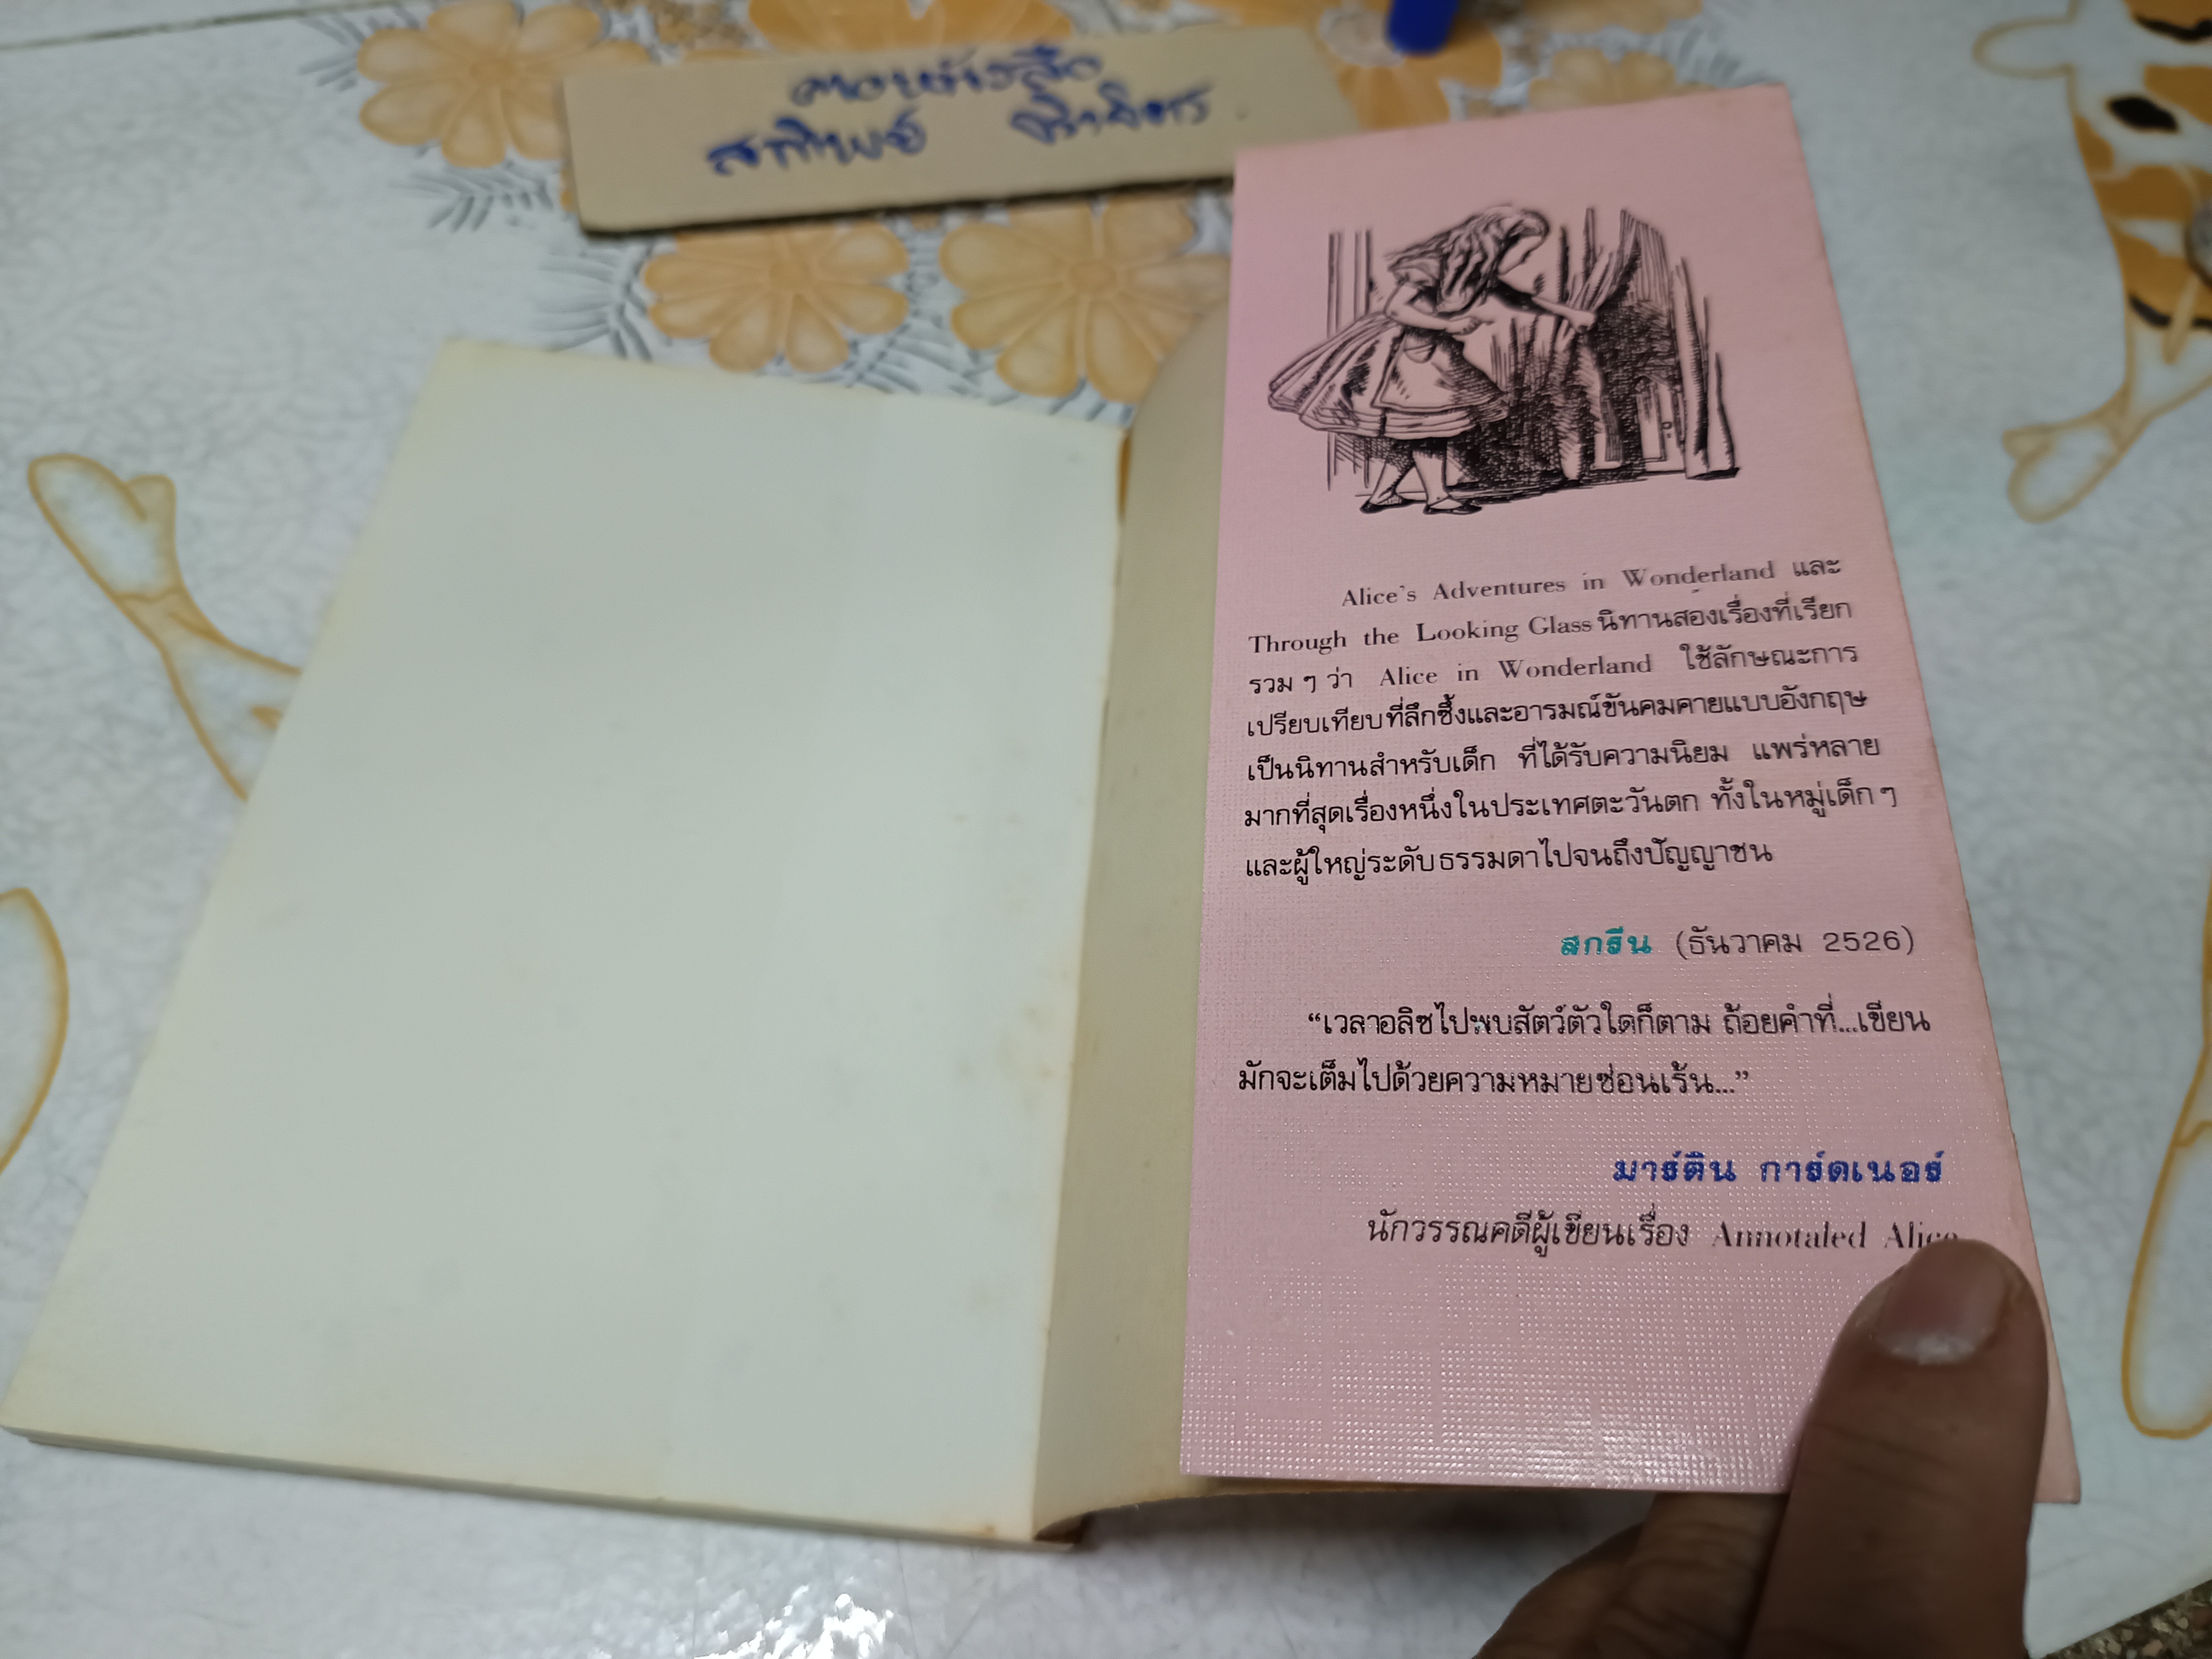 Alice's Adventures in Wonderland และ
Through the Looking Glass นิทานสองเรื่องที่เรียก
รวม ๆ ว่า Alice in Wonderland ใช้ลักษณะการ
เปรียบเทียบที่ลึกซึ้งและอารมณ์ขันคมคายแบบอังกฤษ
เป็นนิทานสำหรับเด็ก ที่ได้รับความนิยม แพร่หลาย
มากที่สุดเรื่องหนึ่งในประเทศตะวันตก ทั้งในหมู่เด็ก ๆ
และผู้ใหญ่ระดับธรรมดาไปจนถึงปัญญาชน
สกรีน (ธันวาคม 2526)
“เวลาอลิซไปพบสัตว์ตัวใดก็ตาม ถ้อยคำที่...เขียน
มักจะเต็มไปด้วยความหมายซ่อนเร้น...”
มาร์ติน การ์ดเนอร์
นักวรรณคดีผู้เขียนเรื่อง Annotaled Alice